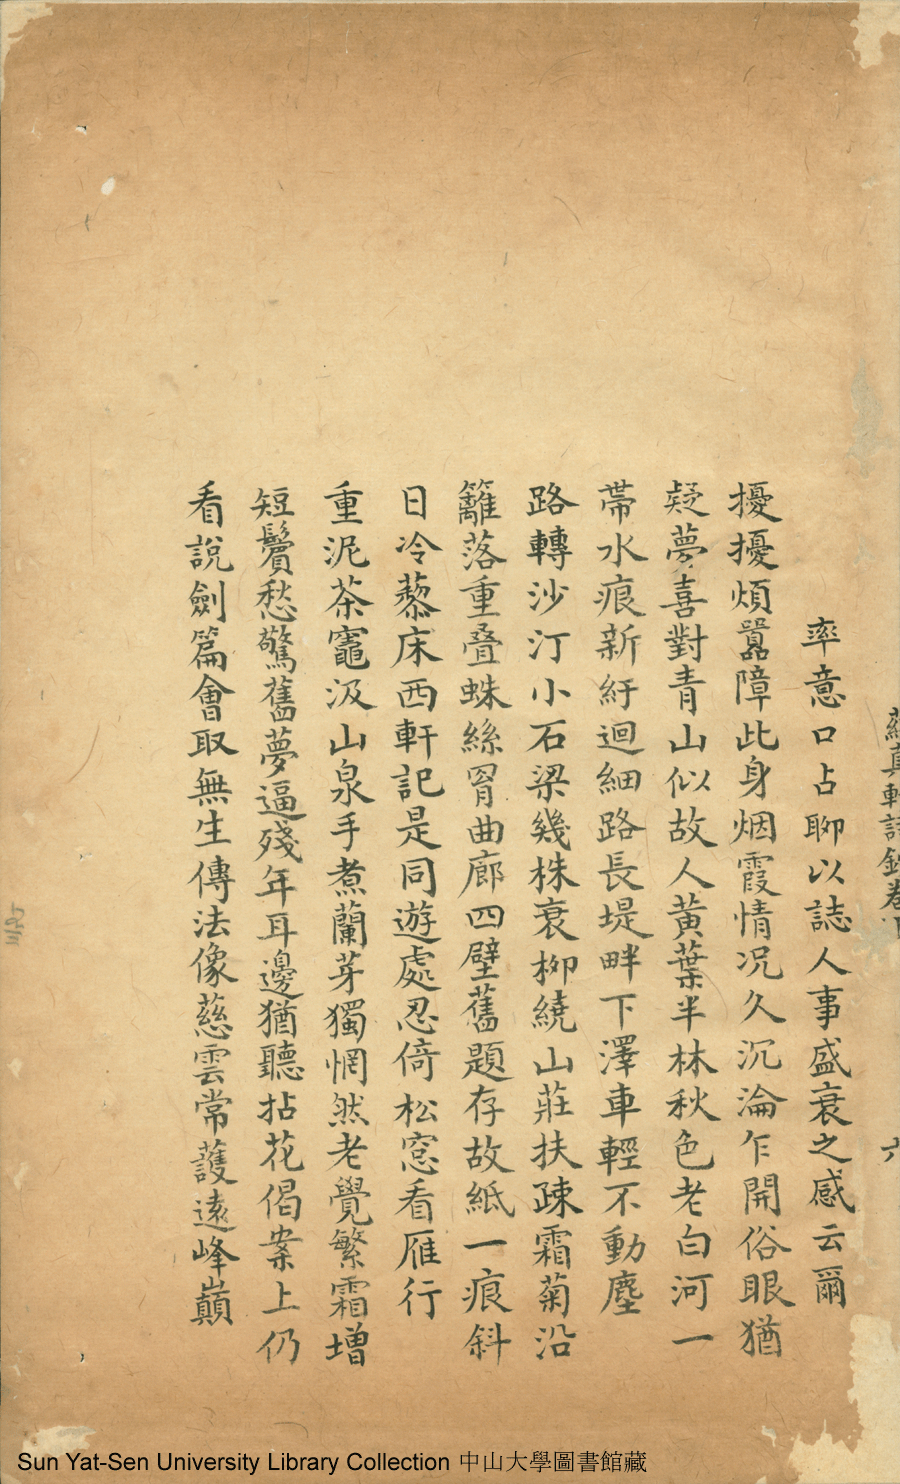 率意口占聊以誌人事盛衰之感云爾
擾擾煩囂障此身烟霞情况久沉淪乍開俗眼猶
疑夢喜對青山似故人黃葉半林秋色老白河一
帶水痕新紆迴細路長堤畔下澤車輕不動塵
路轉沙汀小石梁幾株衰柳繞山莊扶疎霜菊沿
籬落重疊蛛絲罥曲廊四壁舊題存故紙一痕斜
日冷藜床西軒記是同遊處忍倚松窓看雁行
重泥茶竈汲山泉手煮蘭芽獨惘然老覺繁霜增
短鬢愁驚舊夢逼殘年耳邊猶聽拈花偈案上仍
看說劍篇會取無生傳法像慈雲常護遠峰巔
Sun Yat-Sen University Library Collection 中山大學圖書館藏